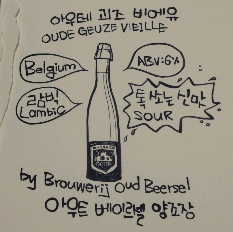 아우테 괴즈 비에유
OUDE GEUZE VIEILLE
Belgium
ABV:6%
람빅
Lambic
톡쏘는 신맛
SOUR
by Brouwerij Oud Beersel
아우트 베이르셀 양조장